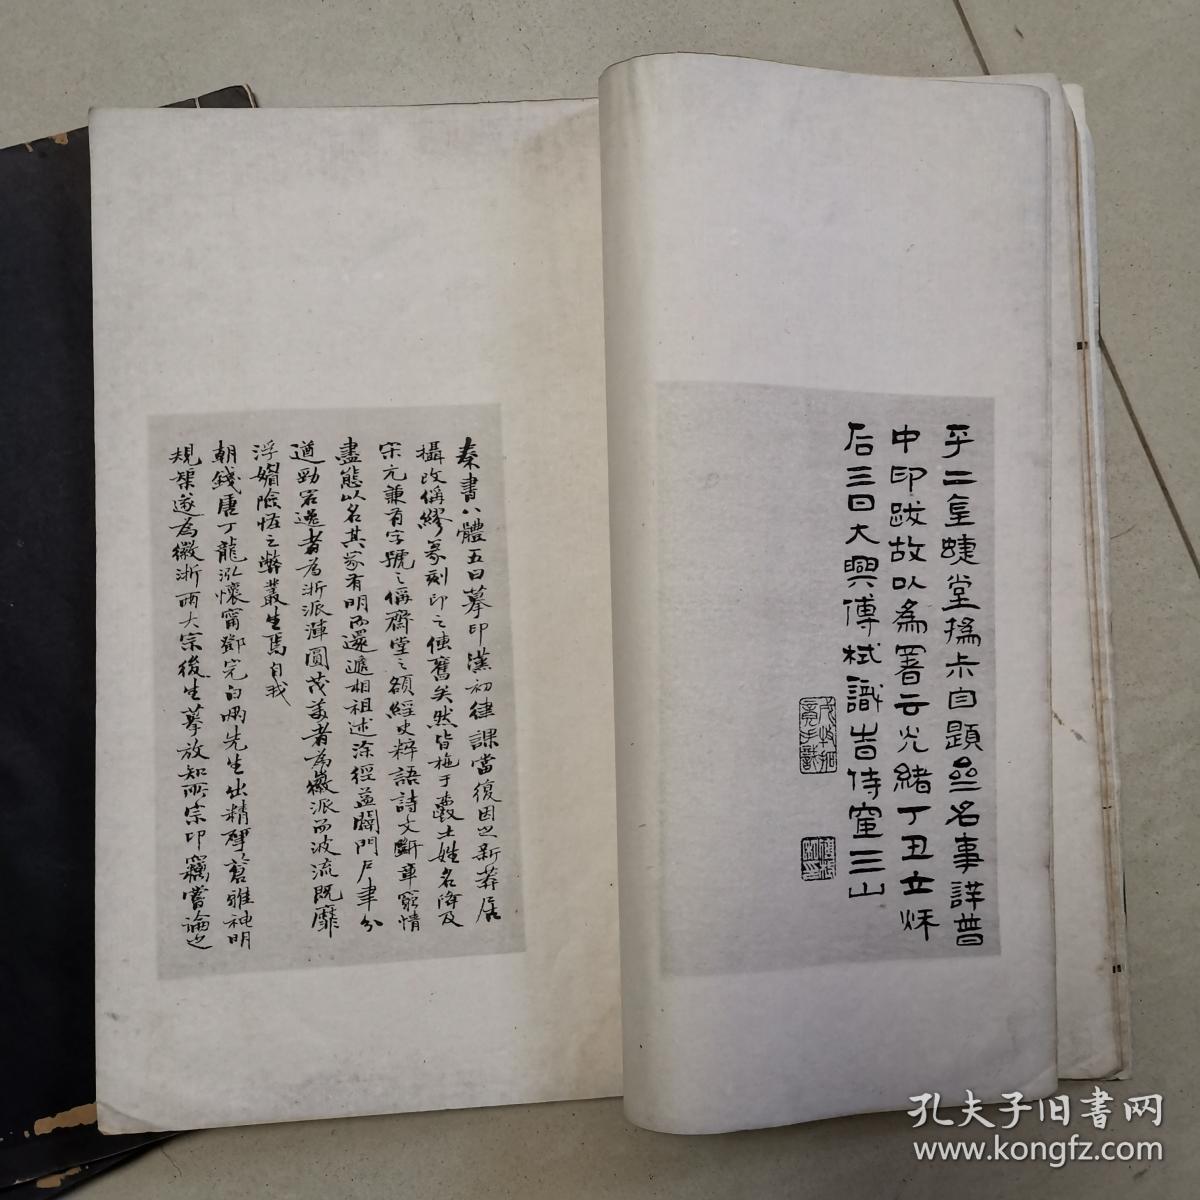 中印跋故以為署云光緒丁丑立秌
后三日大興傅栻識音侍宦三山
秦書八體五曰摹印漢初律課當復因之新莽居
攝改偁繆篆刻印之傳舊矣然皆施于爵土姓名降及
宋元兼有字號之偁齋堂之額經史粹語詩文斷章窮情
盡態以名其家有明而還遞相祖述涂徑益闢門戶聿分
遒勁宕逸者為浙派渾圓茂美者為徽派而波流既靡
浮媚險怪之弊叢生焉自我
朝錢唐丁龍泓懷甯鄧完白兩先生出精擘蒼雅神明
規榘遂為徽浙兩大宗後生摹放知所宗印竊嘗論之
孔夫子旧书网
www.kongfz.com